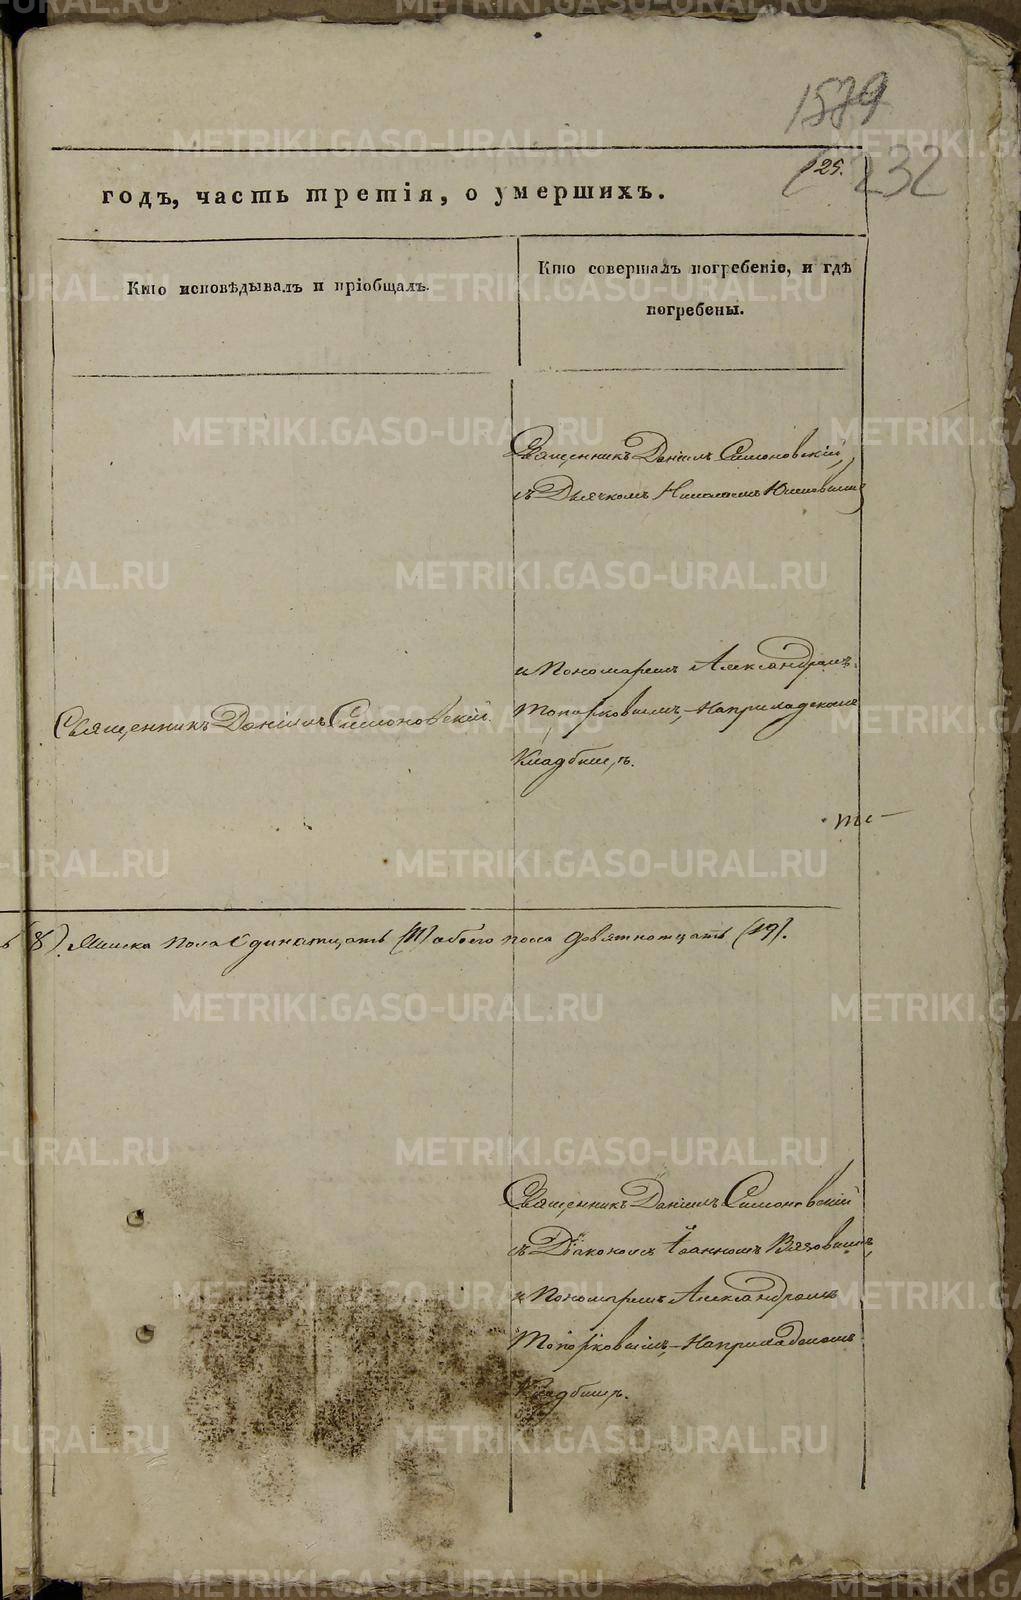 1579
125.
232
годъ, часть третія, о умершихъ.
Кто исповѣдывалъ и пріобщалъ.
Кто совершалъ погребеніе, и гдѣ
погребены.
Священникъ Даніилъ Симоновскій,
съ Дьячкомъ Николаемъ
и Пономаремъ Александромъ
Священникъ Даніилъ Симоновскій.
Топорковымъ, На приходскомъ
Кладбищѣ.
(8). Женска пола Одинатцать (11) обоего пола девятнатцать (19).
Священникъ Даніилъ Симоновскій
съ Діакономъ Іоанномъ
и Пономаремъ Александромъ
Топорковымъ, На приходскомъ
Кладбищѣ.
METRIKI.GASO-URAL.RU